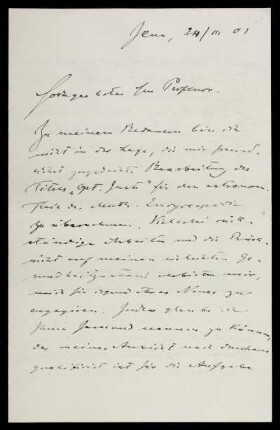 Jena, 24/III 01
Hochgeehrter Herr Professor.
Zu meinem Bedauern bin ich
nicht in der Lage, die mir freund-
lichst zugedachte Bearbeitung des
Titels „Opt. Instr." für den astronom.
Theil der math. Encyclopädie
zu übernehmen. Vielerlei rück-
ständige Arbeiten und die Rück-
sicht auf meinen
verbieten mir,
mich für irgend etwas Neues zu
engagiren. Jedoch glaube ich
Ihnen Jemand nennen zu können,
der meiner Ansicht nach durchaus
qualificirt ist für die Aufgabe